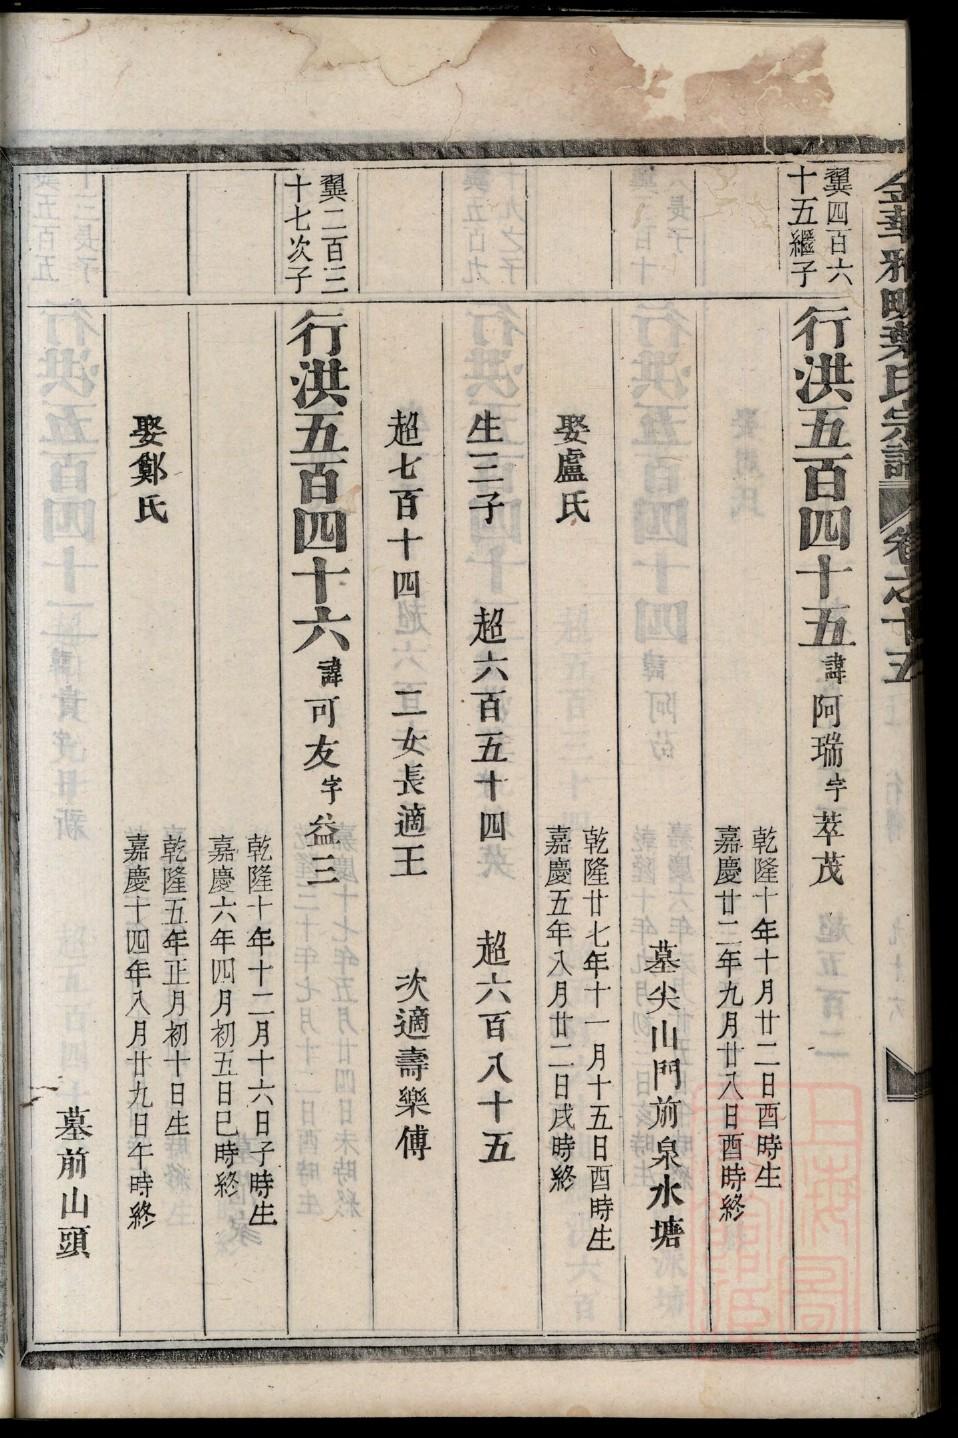 金華雅畈葉氏宗譜 卷之十五
翼四百六
十五繼子
行洪五百四十五 諱阿瑞 字萃茂
乾隆十年十月廿二日酉時生
嘉慶廿二年九月廿八日酉時終
墓尖山門前泉水塘
娶盧氏
乾隆廿七年十一月十五日酉時生
嘉慶五年八月廿二日戌時終
生三子 超六百五十四 超六百八十五
超七百十四 二女長適王 次適壽樂傅
翼二百三
十七次子
行洪五百四十六 諱可友 字益三
乾隆十年十二月十六日子時生
嘉慶六年四月初五日巳時終
娶鄭氏
乾隆五年正月初十日生
嘉慶十四年八月廿九日午時終
墓前山頭